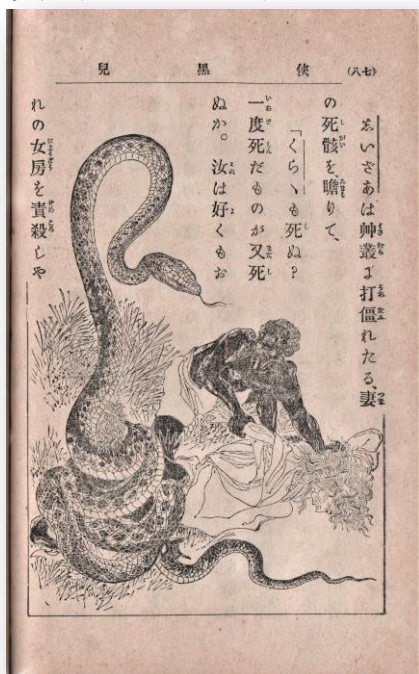 侠黒児
(七八)
ゑいざあは艸叢に打僵れたる、妻
の死骸を瞻りて、
「くらゝも死ぬ?
一度死だものが又死
ぬか。汝は好くもお
れの女房を責殺しや